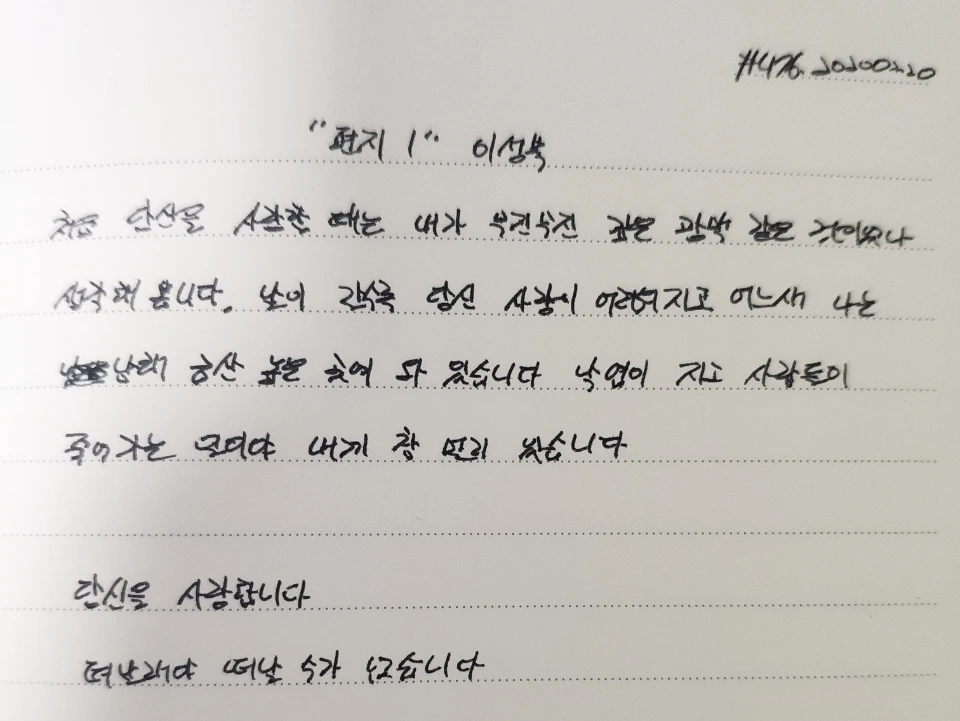 #476. 20200220
"편지 1" 이성복
처음 당신을 사랑할 때는 내가 무진무진 깊은 광맥 같은 것이었나
생각해 봅니다. 날이 갈수록 당신 사랑이 어려워지고 어느새 나는
남해 금산 높은 곳에 와 있습니다 낙엽이 지고 사람들이
죽어가는 일이야 내게 참 멀리 있습니다
당신을 사랑합니다
떠날래야 떠날 수가 없습니다